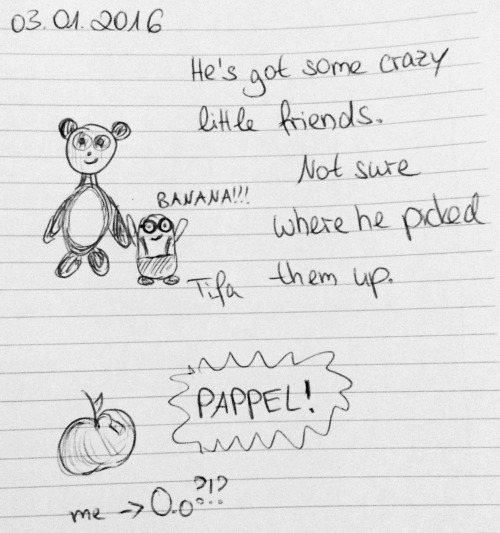 03.01.2016
He's got some crazy
little friends.
Not sure
BANANA!!!
where he picked
Tifa
them up.
PAPPEL!
me -> O.o ?!?